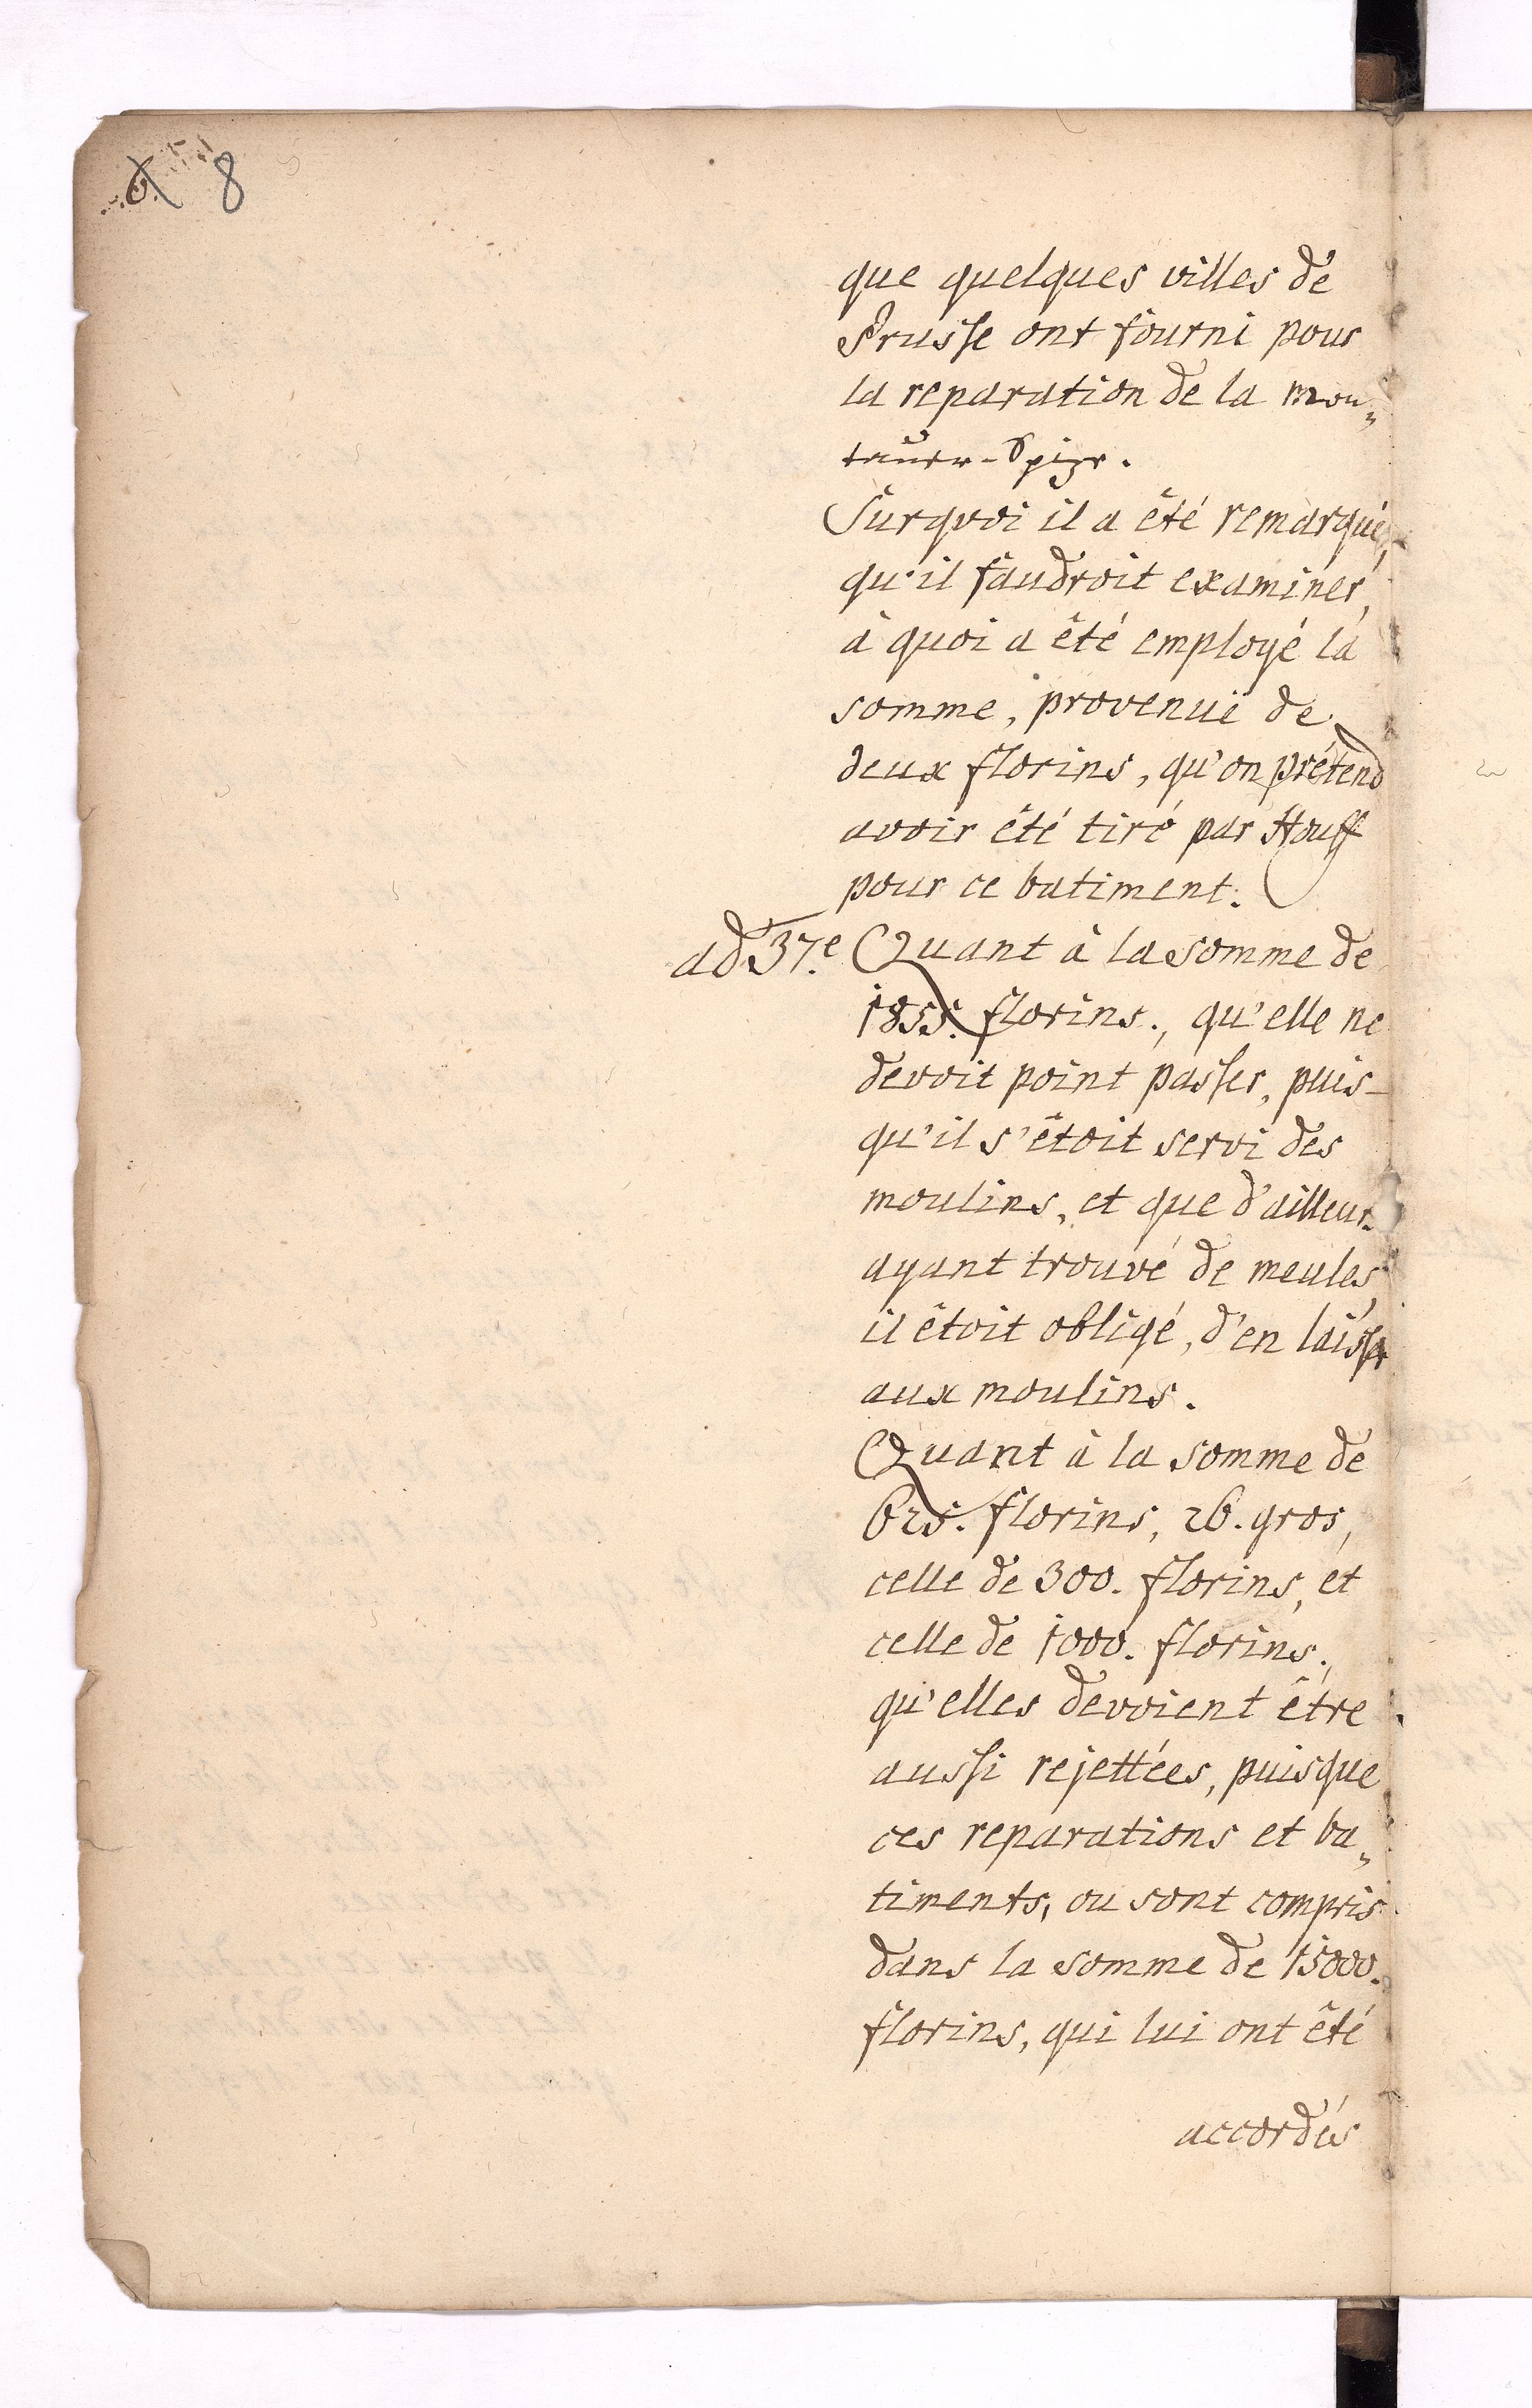 8
que quelques villes de
Prusse ont fourni pour
la reparation de la Mon„
tauer-Spize.
Surquoi il a êté remarqué,
qu'il faudroit examiner,
à quoi a êté employé la
somme, provenuë de
deux florins, qu'on prétend
avoir êté tiré par Houff
pour ce batiment.
ad 37.e Quant à la somme de
1855. florins., qu'elle ne
devoit point passer, puis-
qu'il s'êtoit servi des
moulins, et que d'ailleurs
ayant trouvé de meules,
il êtoit obligé, d'en laisser
aux moulins.
Quant à la somme de
625. florins, 26. gros,
celle de 300. florins, et
celle de 1000. florins.,
qu'elles devoient être
aussi rejettées, puisque
ces reparations et ba„
timents, ou sont compris
dans la somme de 15000.
florins, qui lui ont êté
accordés